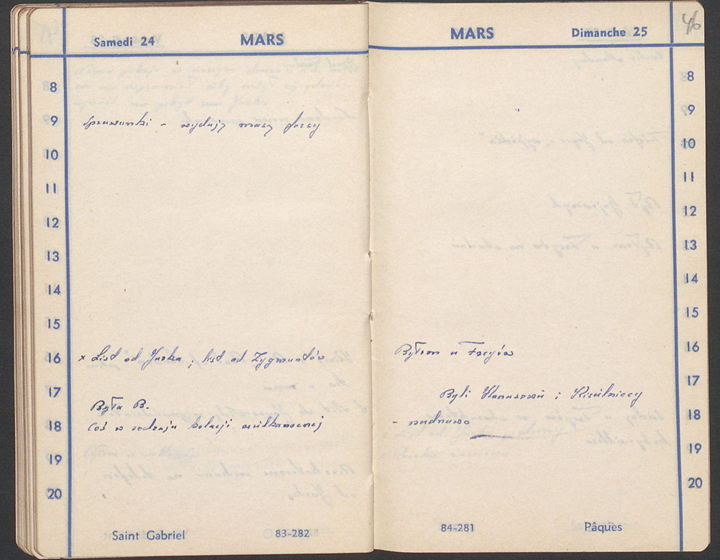 Samedi 24
MARS
8
9
sprawunki - wydaję masę forsy
10
11
12
13
14
15
16
x List od Jurka ; list od Zygmuntów
17
Była B.
18
Coś w rodzaju kolacji wielkanocnej
19
20
Saint Gabriel
83-282
46
MARS
Dimanche 25
8
9
10
11
12
13
14
15
16
Byłem u
17
Byli
i
18
- nudnawo
19
20
84-281
Pâques